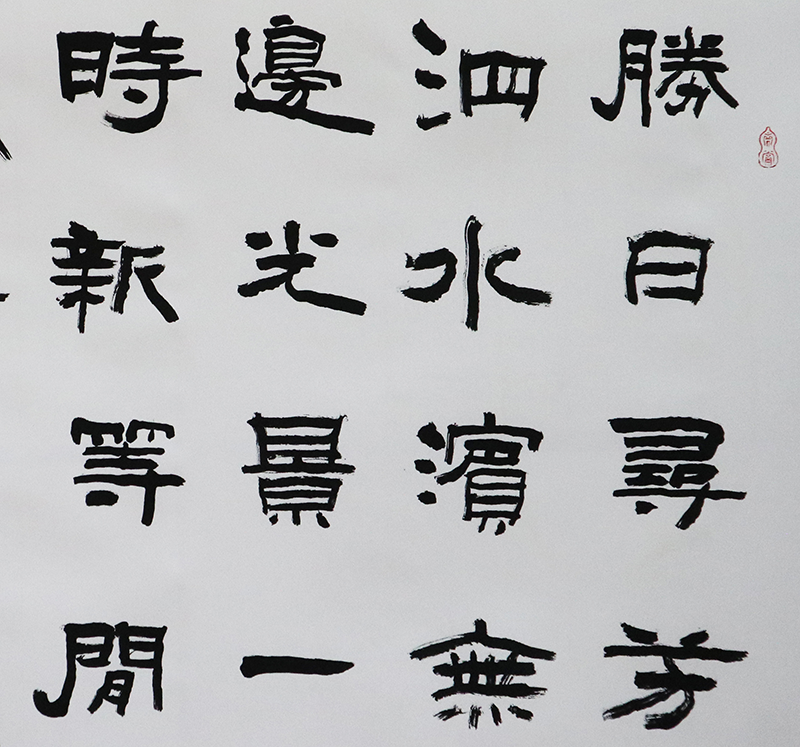 勝日尋芳
泗水濱無
邊光景一
時新等閒